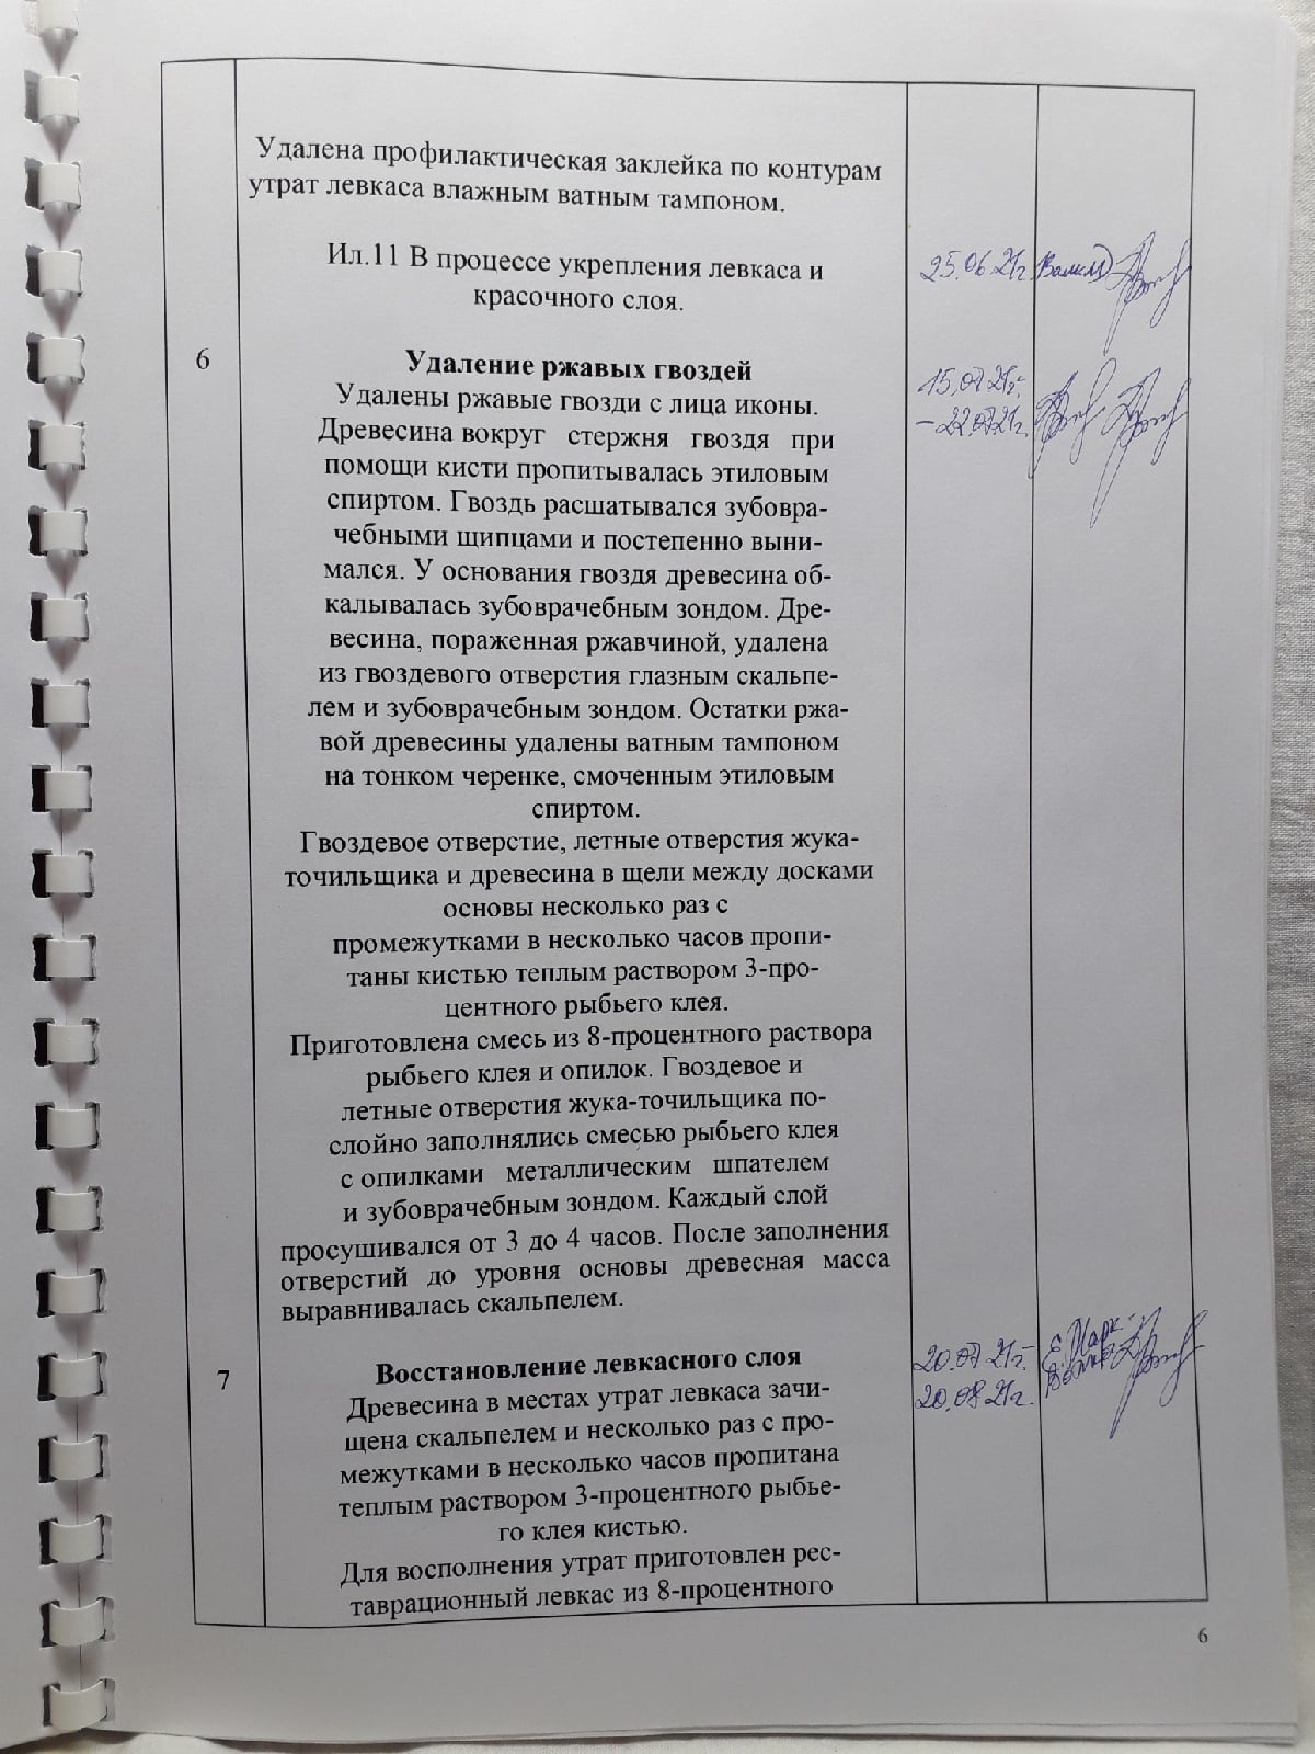 Удалена профилактическая заклейка по контурам
утрат левкаса влажным ватным тампоном.
Ил.11 В процессе укрепления левкаса и
красочного слоя.
25.06.21г.
6
Удаление ржавых гвоздей
Удалены ржавые гвозди с лица иконы.
Древесина вокруг стержня гвоздя при
помощи кисти пропитывалась этиловым
спиртом. Гвоздь расшатывался зубовра-
чебными щипцами и постепенно выни-
мался. У основания гвоздя древесина об-
калывалась зубоврачебным зондом. Дре-
весина, пораженная ржавчиной, удалена
из гвоздевого отверстия глазным скальпе-
лем и зубоврачебным зондом. Остатки ржа-
вой древесины удалены ватным тампоном
на тонком черенке, смоченным этиловым
спиртом.
Гвоздевое отверстие, летные отверстия жука-
точильщика и древесина в щели между досками
основы несколько раз с
промежутками в несколько часов пропи-
таны кистью теплым раствором 3-про-
центного рыбьего клея.
Приготовлена смесь из 8-процентного раствора
рыбьего клея и опилок. Гвоздевое и
летные отверстия жука-точильщика по-
слойно заполнялись смесью рыбьего клея
с опилками металлическим шпателем
и зубоврачебным зондом. Каждый слой
просушивался от 3 до 4 часов. После заполнения
отверстий до уровня основы древесная масса
выравнивалась скальпелем.
15.07.21г.
-22.07.21г.
7
Восстановление левкасного слоя
Древесина в местах утрат левкаса зачи-
щена скальпелем и несколько раз с про-
межутками в несколько часов пропитана
теплым раствором 3-процентного рыбье-
го клея кистью.
Для восполнения утрат приготовлен рес-
таврационный левкас из 8-процентного
20.07.21г.
20.08.21г.
6